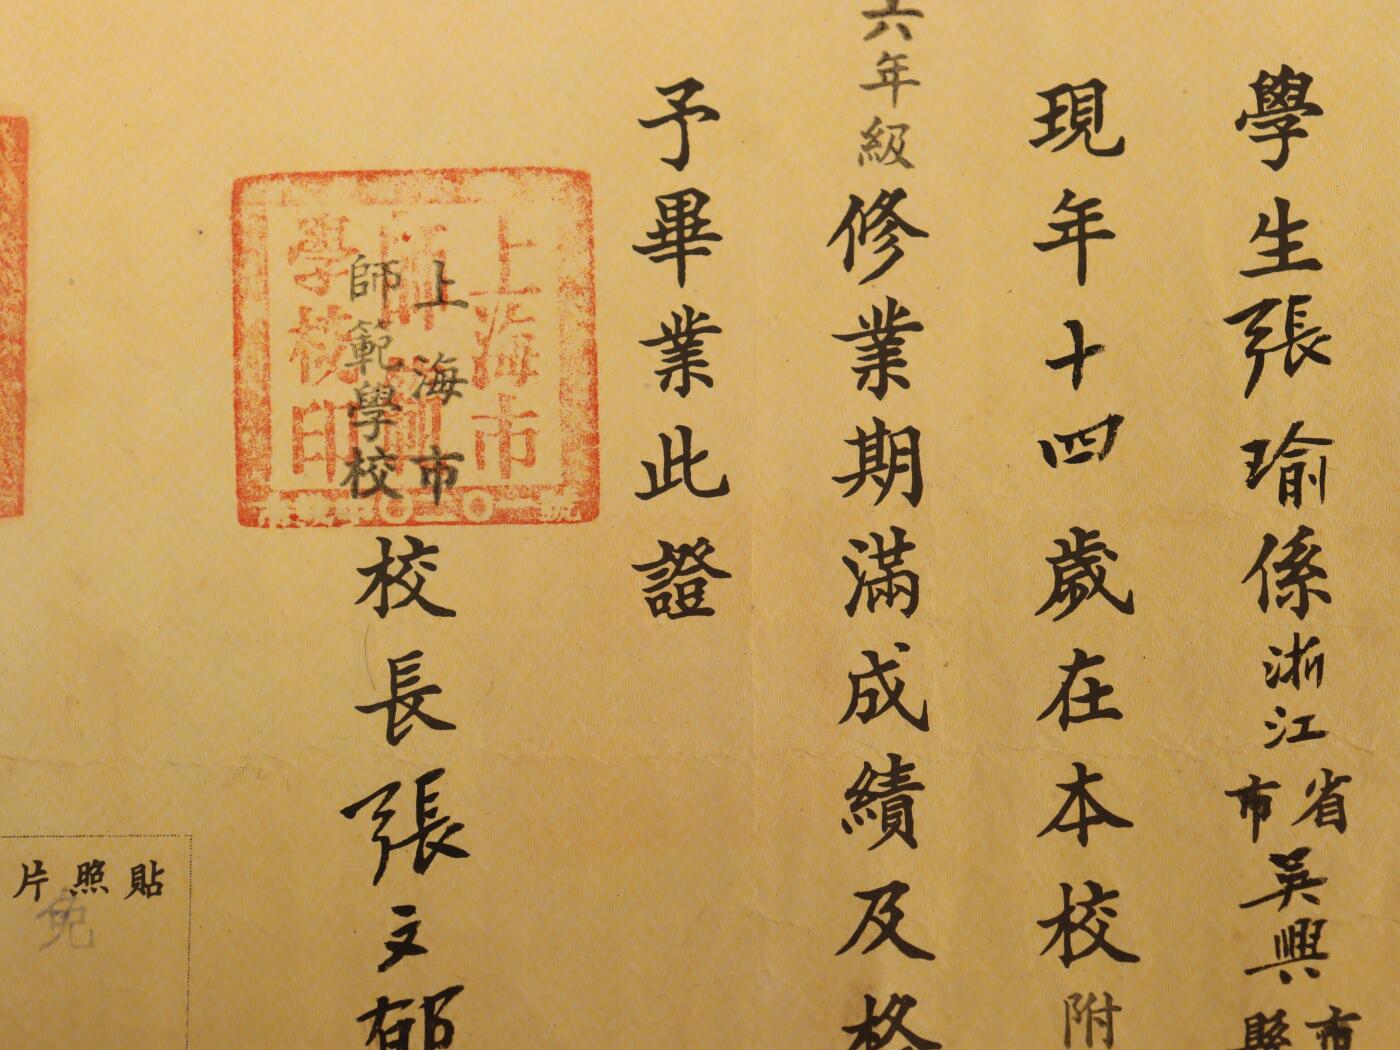 學生張瑜係浙江省市吳興縣市
現年十四歲在本校附
六年級修業期滿成績及格
予畢業此證
上海市
師範學校
校長張文郁
上海市
師範
學校印
貼照片
免